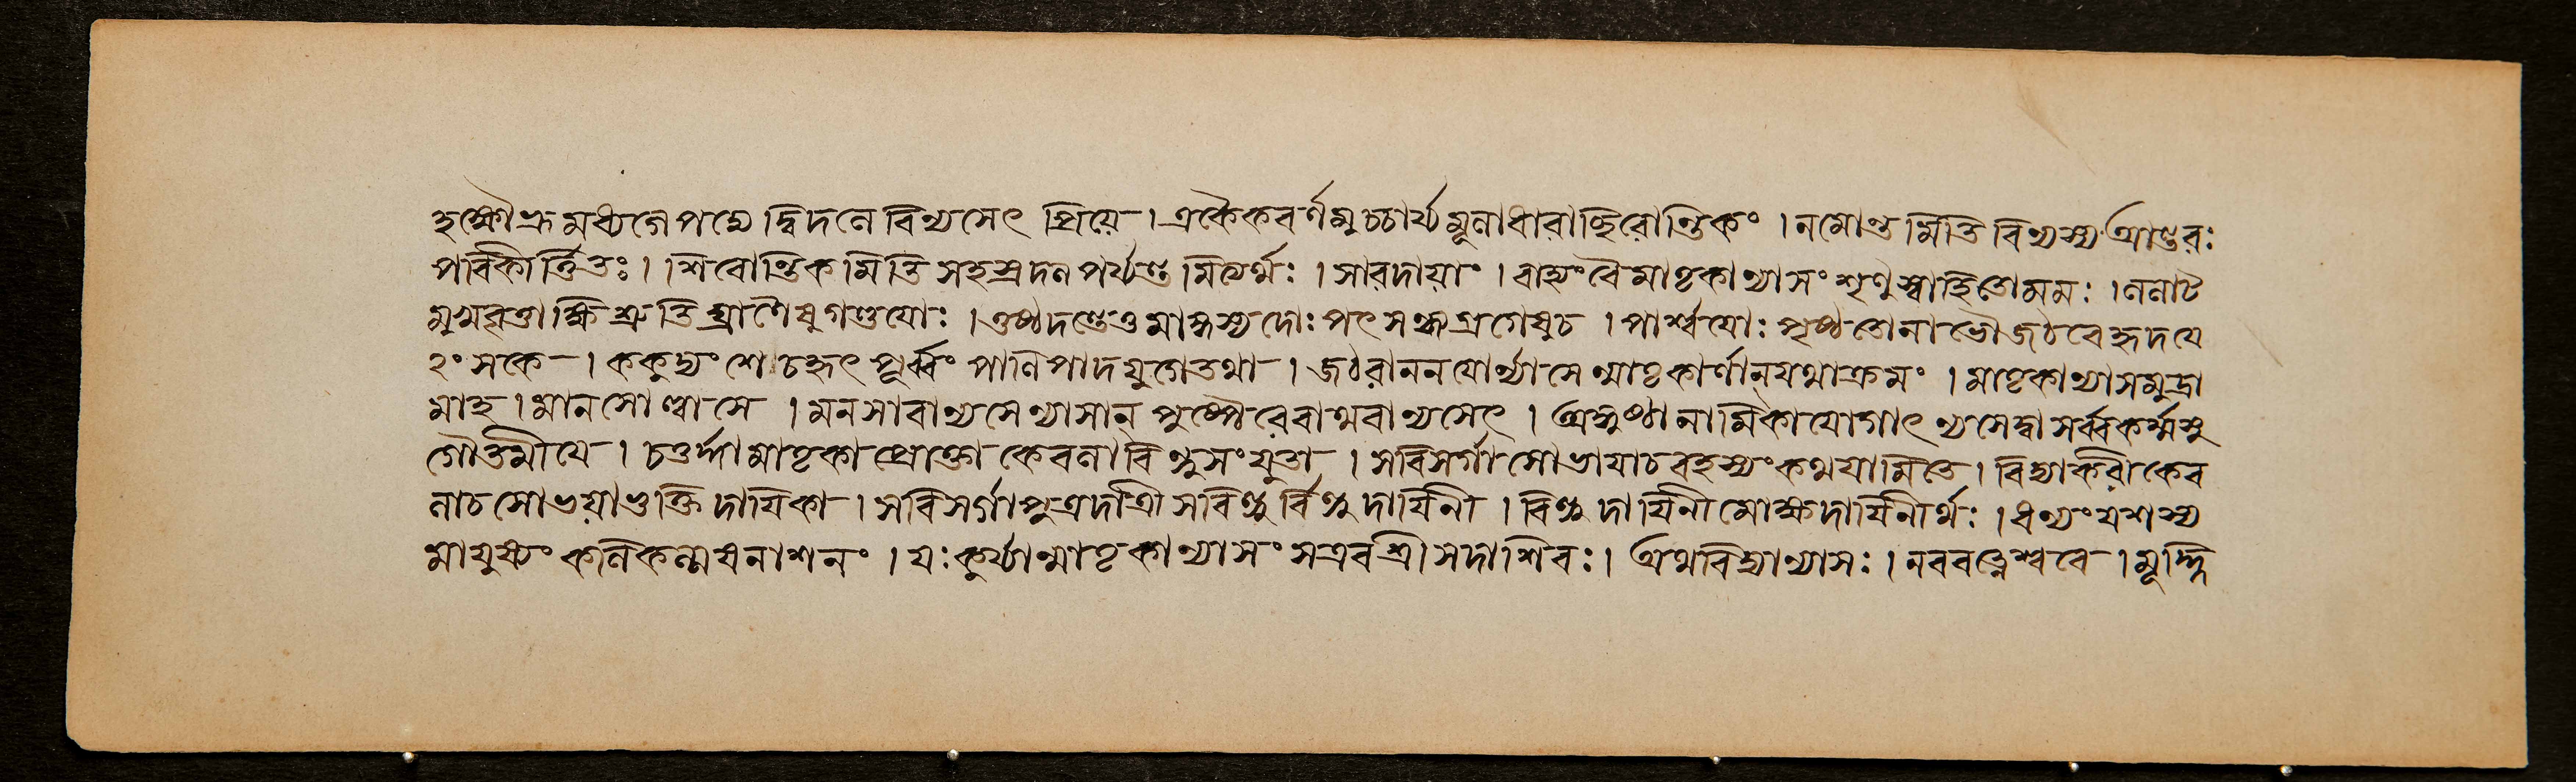 হক্ষৌভ্রূমধ্যগেপদ্মেদ্বিদলেবিন্যসেৎ প্রিয়ে। একৈকবর্ণমুচ্চার্য্যমূলাধারাচ্ছিরোন্তিকং। নমোন্তমিতিবিন্যস্যআন্তরঃ
পরিকীর্ত্তিতঃ। শিরোন্তিকমিতিসহস্রদলপর্য্যন্তমিত্যর্থঃ। সারদায়াং। বাহ্যংবৈমাতৃকান্যাসংশৃণুস্বাহিতোমমঃ। ললাট
মুখবৃত্তাক্ষিশ্রুতিঘ্রাণৈষুগণ্ডয়োঃ। ওষ্ঠদন্তেওমাঙ্গস্যদোঃপৎসন্ধ্যগ্রগেষুচ। পার্শ্বয়োঃপৃষ্ঠতোনাভৌজঠরেহৃদয়ে
২ংসকে। ককুদ্যংশেচহৃৎপূর্ব্বংপাণিপাদযুগেতথা। জঠরাননয়োর্ন্যাসেন্মাতৃকার্ণান্যথাক্রমং। মাতৃকান্যাসমুদ্রা
মাহ। মানসোল্লাসে। মনসাবান্যসেন্যাসান্ পুষ্পৈরেবাথবান্যসেৎ। অঙ্গুষ্ঠানামিকাযোগাৎন্যসেদ্বাসর্ব্বকর্ম্মসু
গৌতমীয়ে। চতুর্দ্ধামাতৃকাপ্রোক্তাকেবলাবিন্দুসংযুতা। সবিসর্গাসোভয়াচরহস্যংকথয়ামিতে। বিদ্যাকরীকেব
লাচসোভয়াভুক্তিদায়িকা। সবিসর্গাপুত্রদাত্রীসবিন্দুর্বিন্দুদায়িনী। বিন্দুদায়িনীমোক্ষদায়িনীর্থঃ। ধন্যংযশস্য
মায়ুষ্যংকলিকল্মষনাশনং। যঃকুর্য্যান্মাতৃকান্যাসংসএবশ্রীসদাশিবঃ। অথবিদ্যান্যাসঃ। নবরত্নেশ্বরে। মূর্দ্ধ্নি